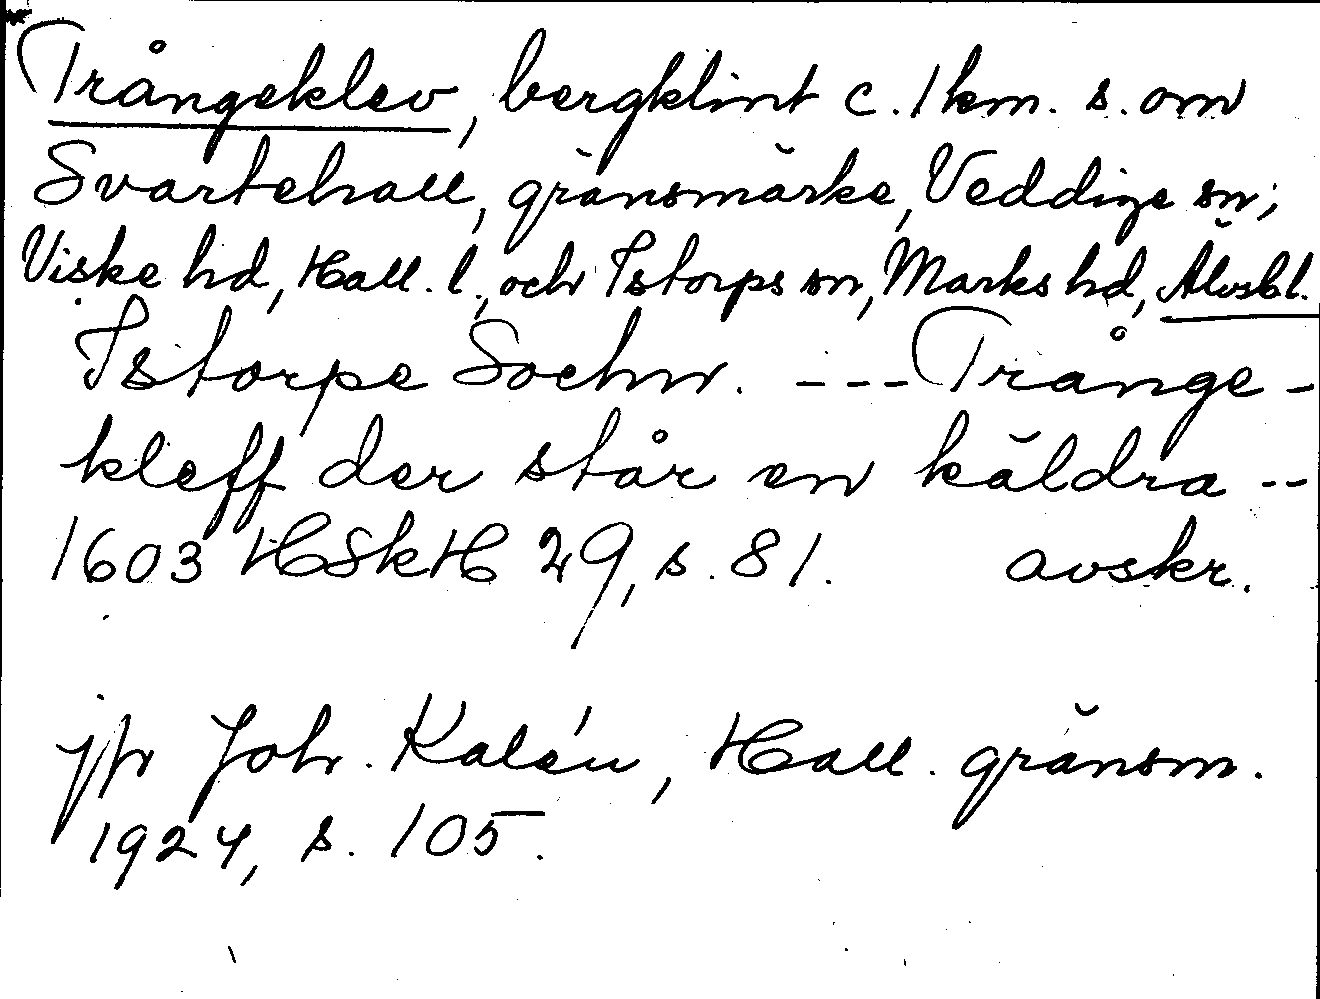 Trångeklev, bergklint c. 1 km. s. om
Svartehall, gränsmärke, Veddige sn;
Viske hd, Hall. l., och Istorps sn, Marks hd, Älvsbl.
Istorpe Sochn. --- Trånge-
kleff der står en käldra --
1603 HSkH 29, s. 81. avskr.
jfr Joh. Kalén, Hall. gränsm.
1924, s. 105.